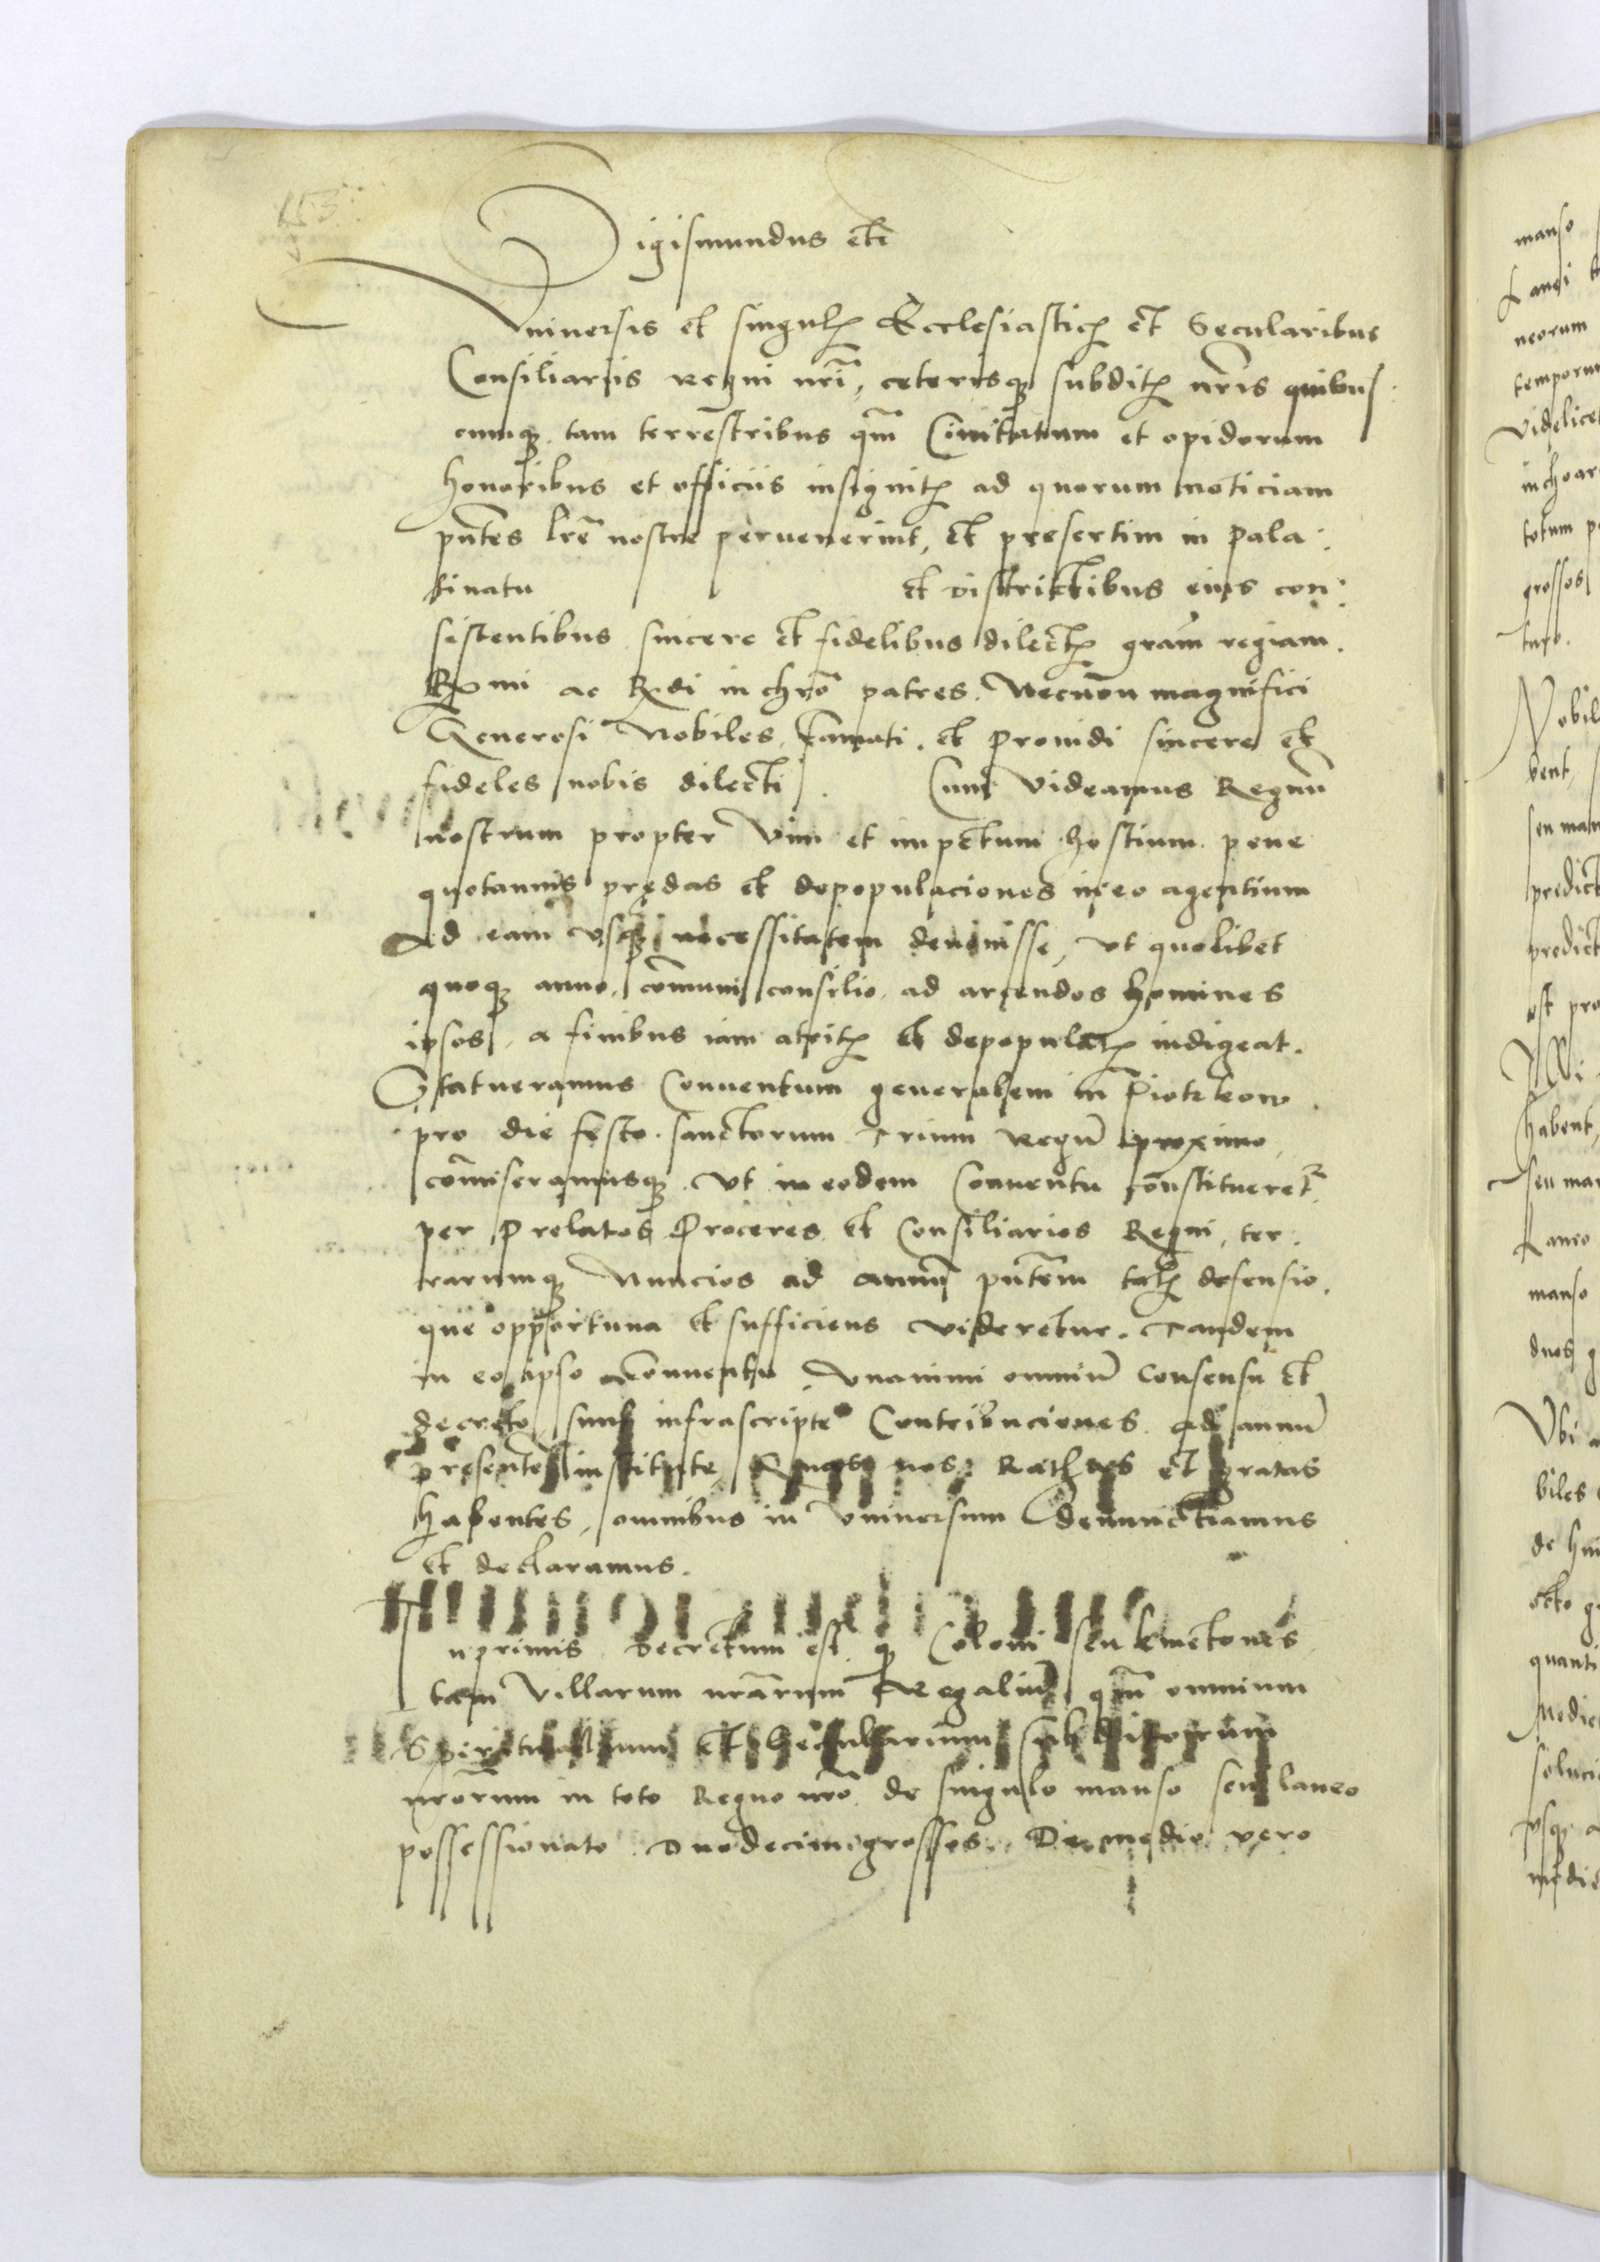 Sigismundus etc
Vniversis et singul Ecclesiastic et Secularibus
Consiliariis Regni nri, ceterisq subdit nris quibus
cumq tam terrestribus qm Civitatum et opidorum
honoribus et officiis insignit ad quorum noticiam
pntes lre nostre pervenerint, et presertim in Pala:
tinatu et districtibus eius con:
sistentibus sincere et fidelibus dilect gram regiam.
Rmi ac Rdi in chro patres. Necnon magnifici
Generosi Nobiles, famati. et providi sincere et
fideles nobis dilecti. Cum videamus Regnu
nostrum propter vim et impetum hostium pene
quotannis predas et depopulaciones in eo agentium
Ad eam usq necessitatem devenisse, vt quolibet
quoq anno, comuni consilio ad arcendos homines
ipsos, a finibus iam atrit et depopulat indigeat.
Statueramus Conventum generalem in Piotrkow
pro die festo sanctorum Trium Regu proximo
comiseramusq vt in eodem Conventu constitueret
per Prelatos Proceres et Consiliarios Regni, ter
rarumq Nuncios ad annu pntem tal defensio
que opportuna et sufficiens videretur. Tandem
in eo ipso Conventu Vnanimi omniu consensu et
decreto, sunt infrascripte Contribuciones ad annu
presentem institute, nos Rathas et gratas
habentes, omnibus in Vniversum denunctiamus
et declaramus.
Inprimis decretum est q Coloni seu kmetones
tam Villarum nrarum Regaliu qm omnium
Spiritualium et Secularium subditorum
nrorum in toto Regno nro de singulo manso seu laneo
possessionato duodecim grossos. De medio vero